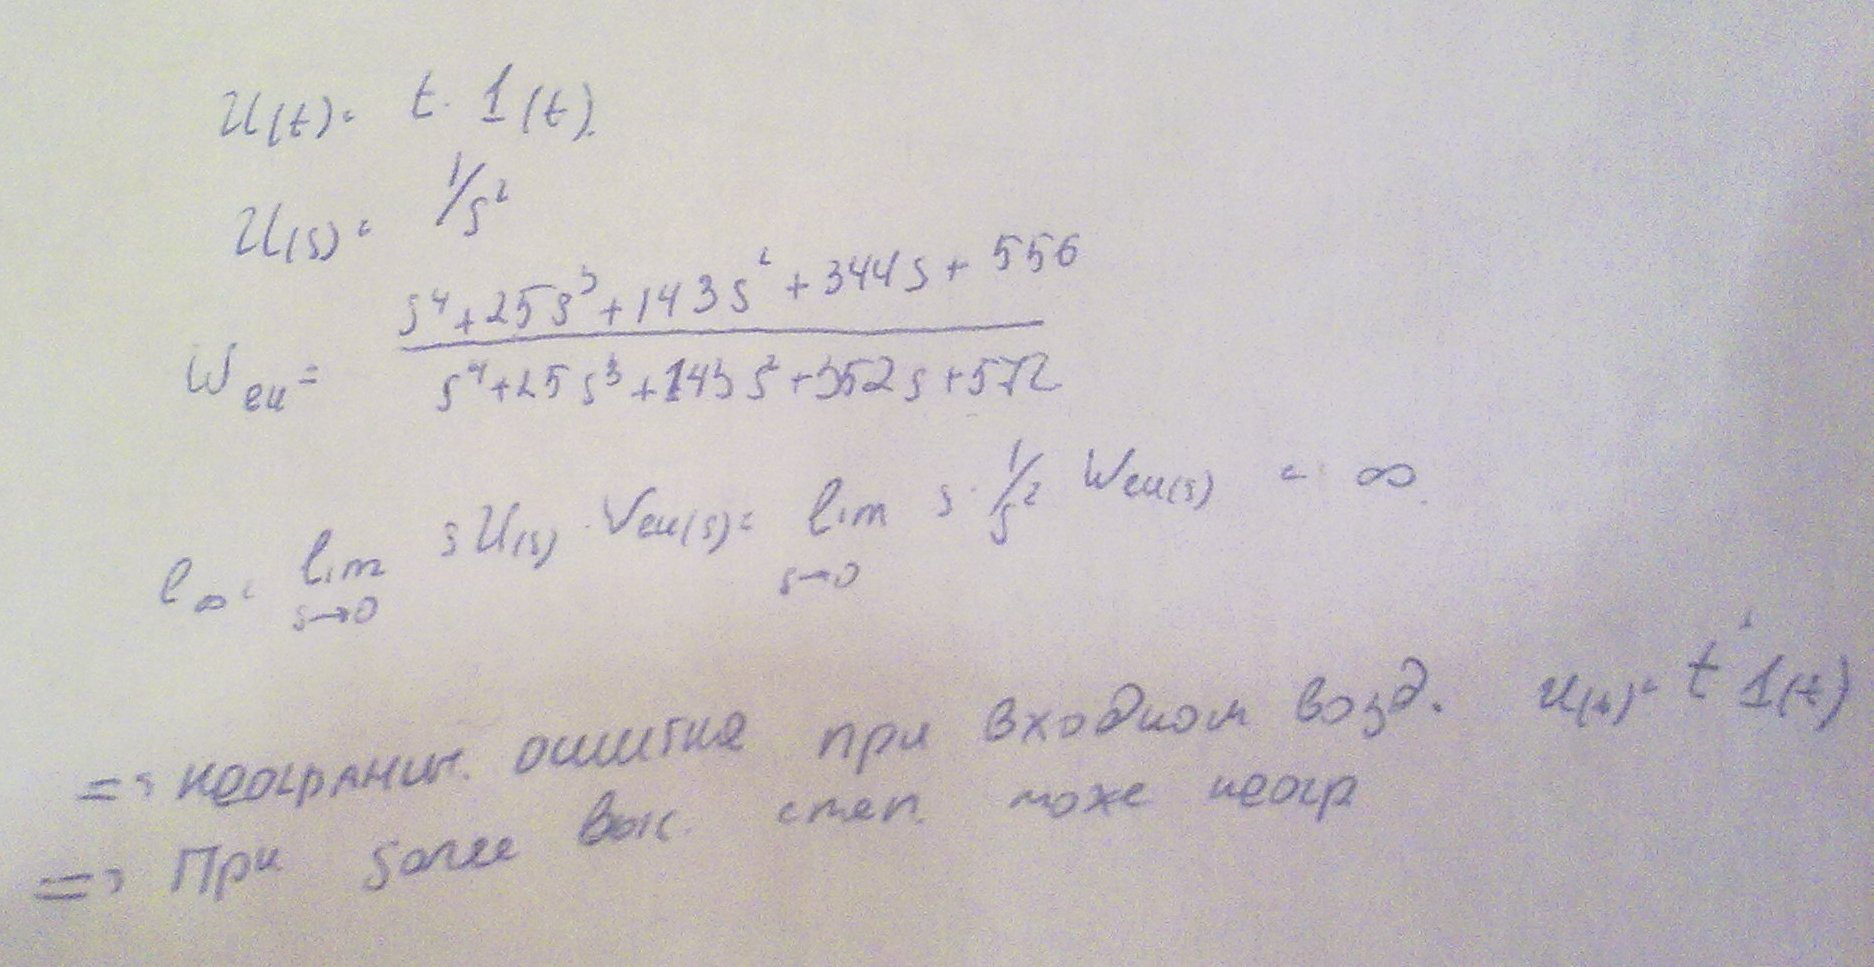 U(t) = t · 1(t).
U(s) = 1/s²
s⁴+25s³+143s²+344s+556
Weu =
s⁴+25s³+143s²+352s+572
e∞ = lim sU(s) · Weu(s) = lim s · 1/s² Weu(s) = ∞.
s→0 s→0
=> неогранич. ошибка при входном возд. u(t) = t · 1(t)
=> При более выс. степ. тоже неогр